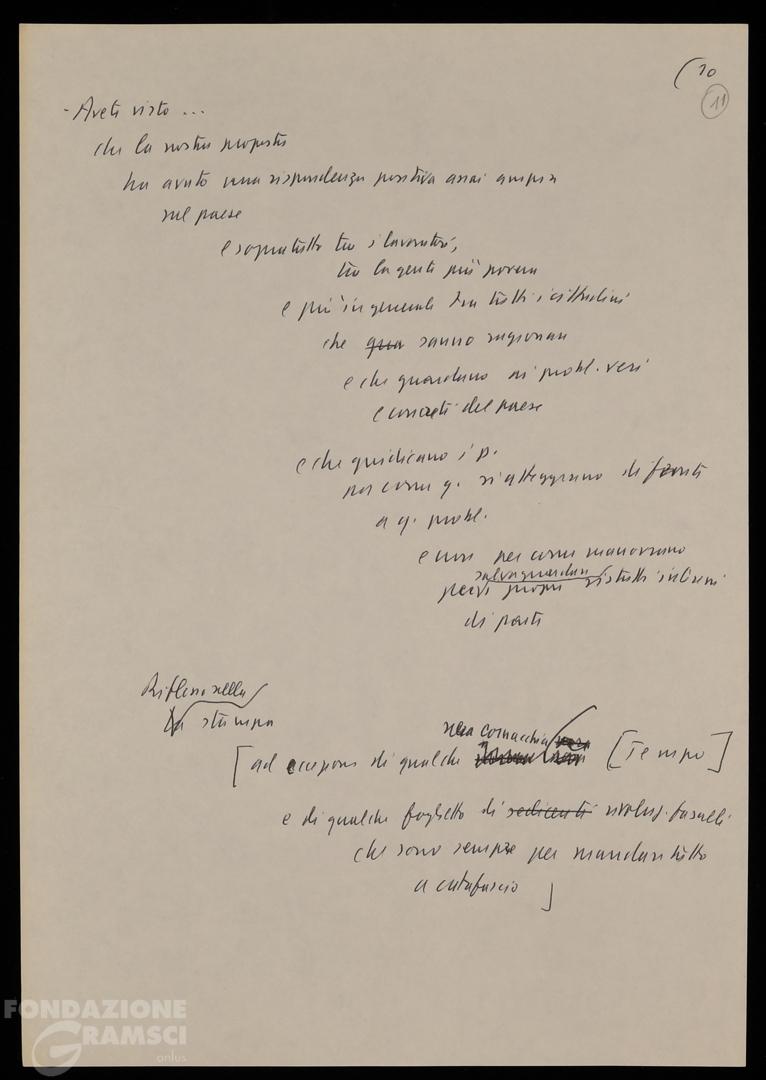 (10
11
- Avete visto ...
che la nostra proposta
ha avuto una rispondenza positiva assai ampia
nel paese
e soprattutto tra i lavoratori,
tra la gente più povera
e più in generale tra tutti i cittadini
che qua sanno ragionare
e che guardano ai probl. veri
e concreti del paese
e che giudicano i p.
per come q. si atteggiano di fronte
a q. probl.
e non per come manovrano
salvaguardare
per i propri ristretti interessi
di parte
Riflesso nella
la stampa
nera cornacchia
[ad eccezione di qualche [Tempo]
e di qualche foglietto di sedicenti rivoluz. fasulli
che sono sempre per mandare tutto
a catafascio]
FONDAZIONE
GRAMSCI
onlus